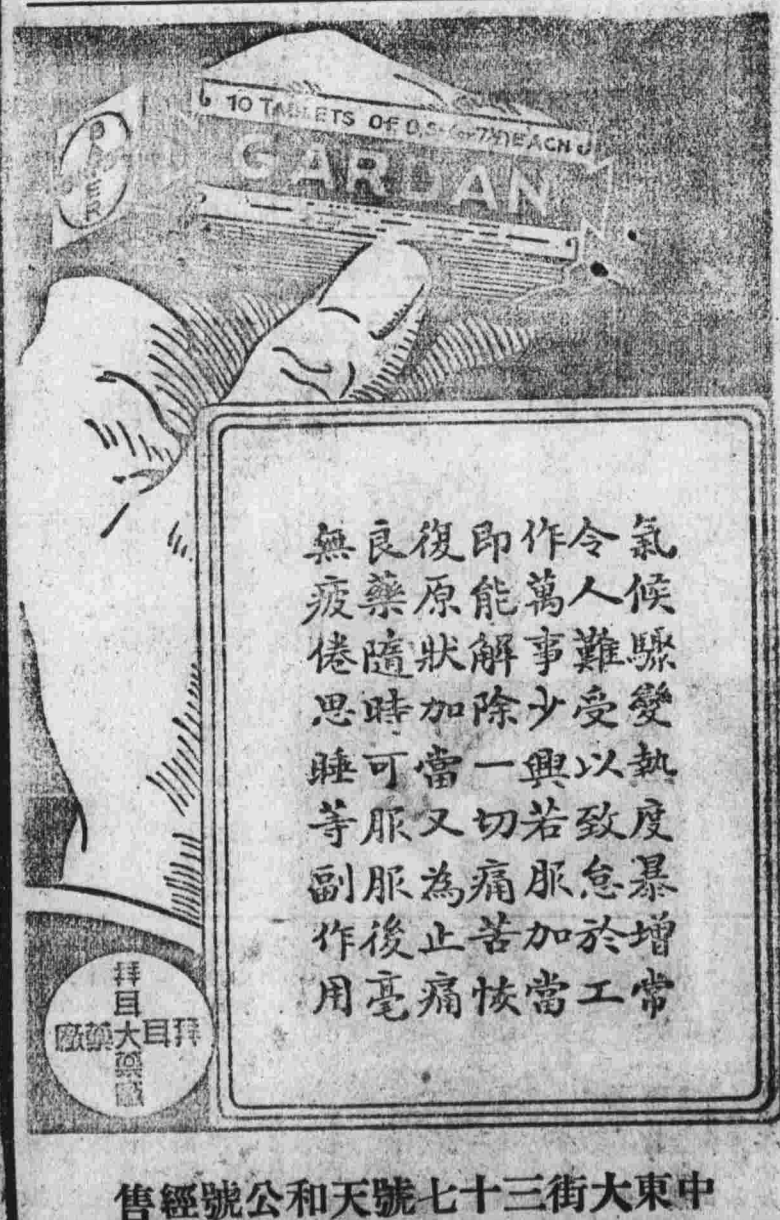 10 TABLETS OF 0,5 (or 7½) EACH
BAYER
GARDAN
氣候驟變熱度暴增常
令人難受以致怠於工
作萬事少興若服加當
即能解除一切痛苦恢
復原狀加當又為止痛
良藥隨時可服服後毫
無疲倦思睡等副作用
拜耳大藥廠
拜耳大藥廠
中東大街三十七號天和公號經售